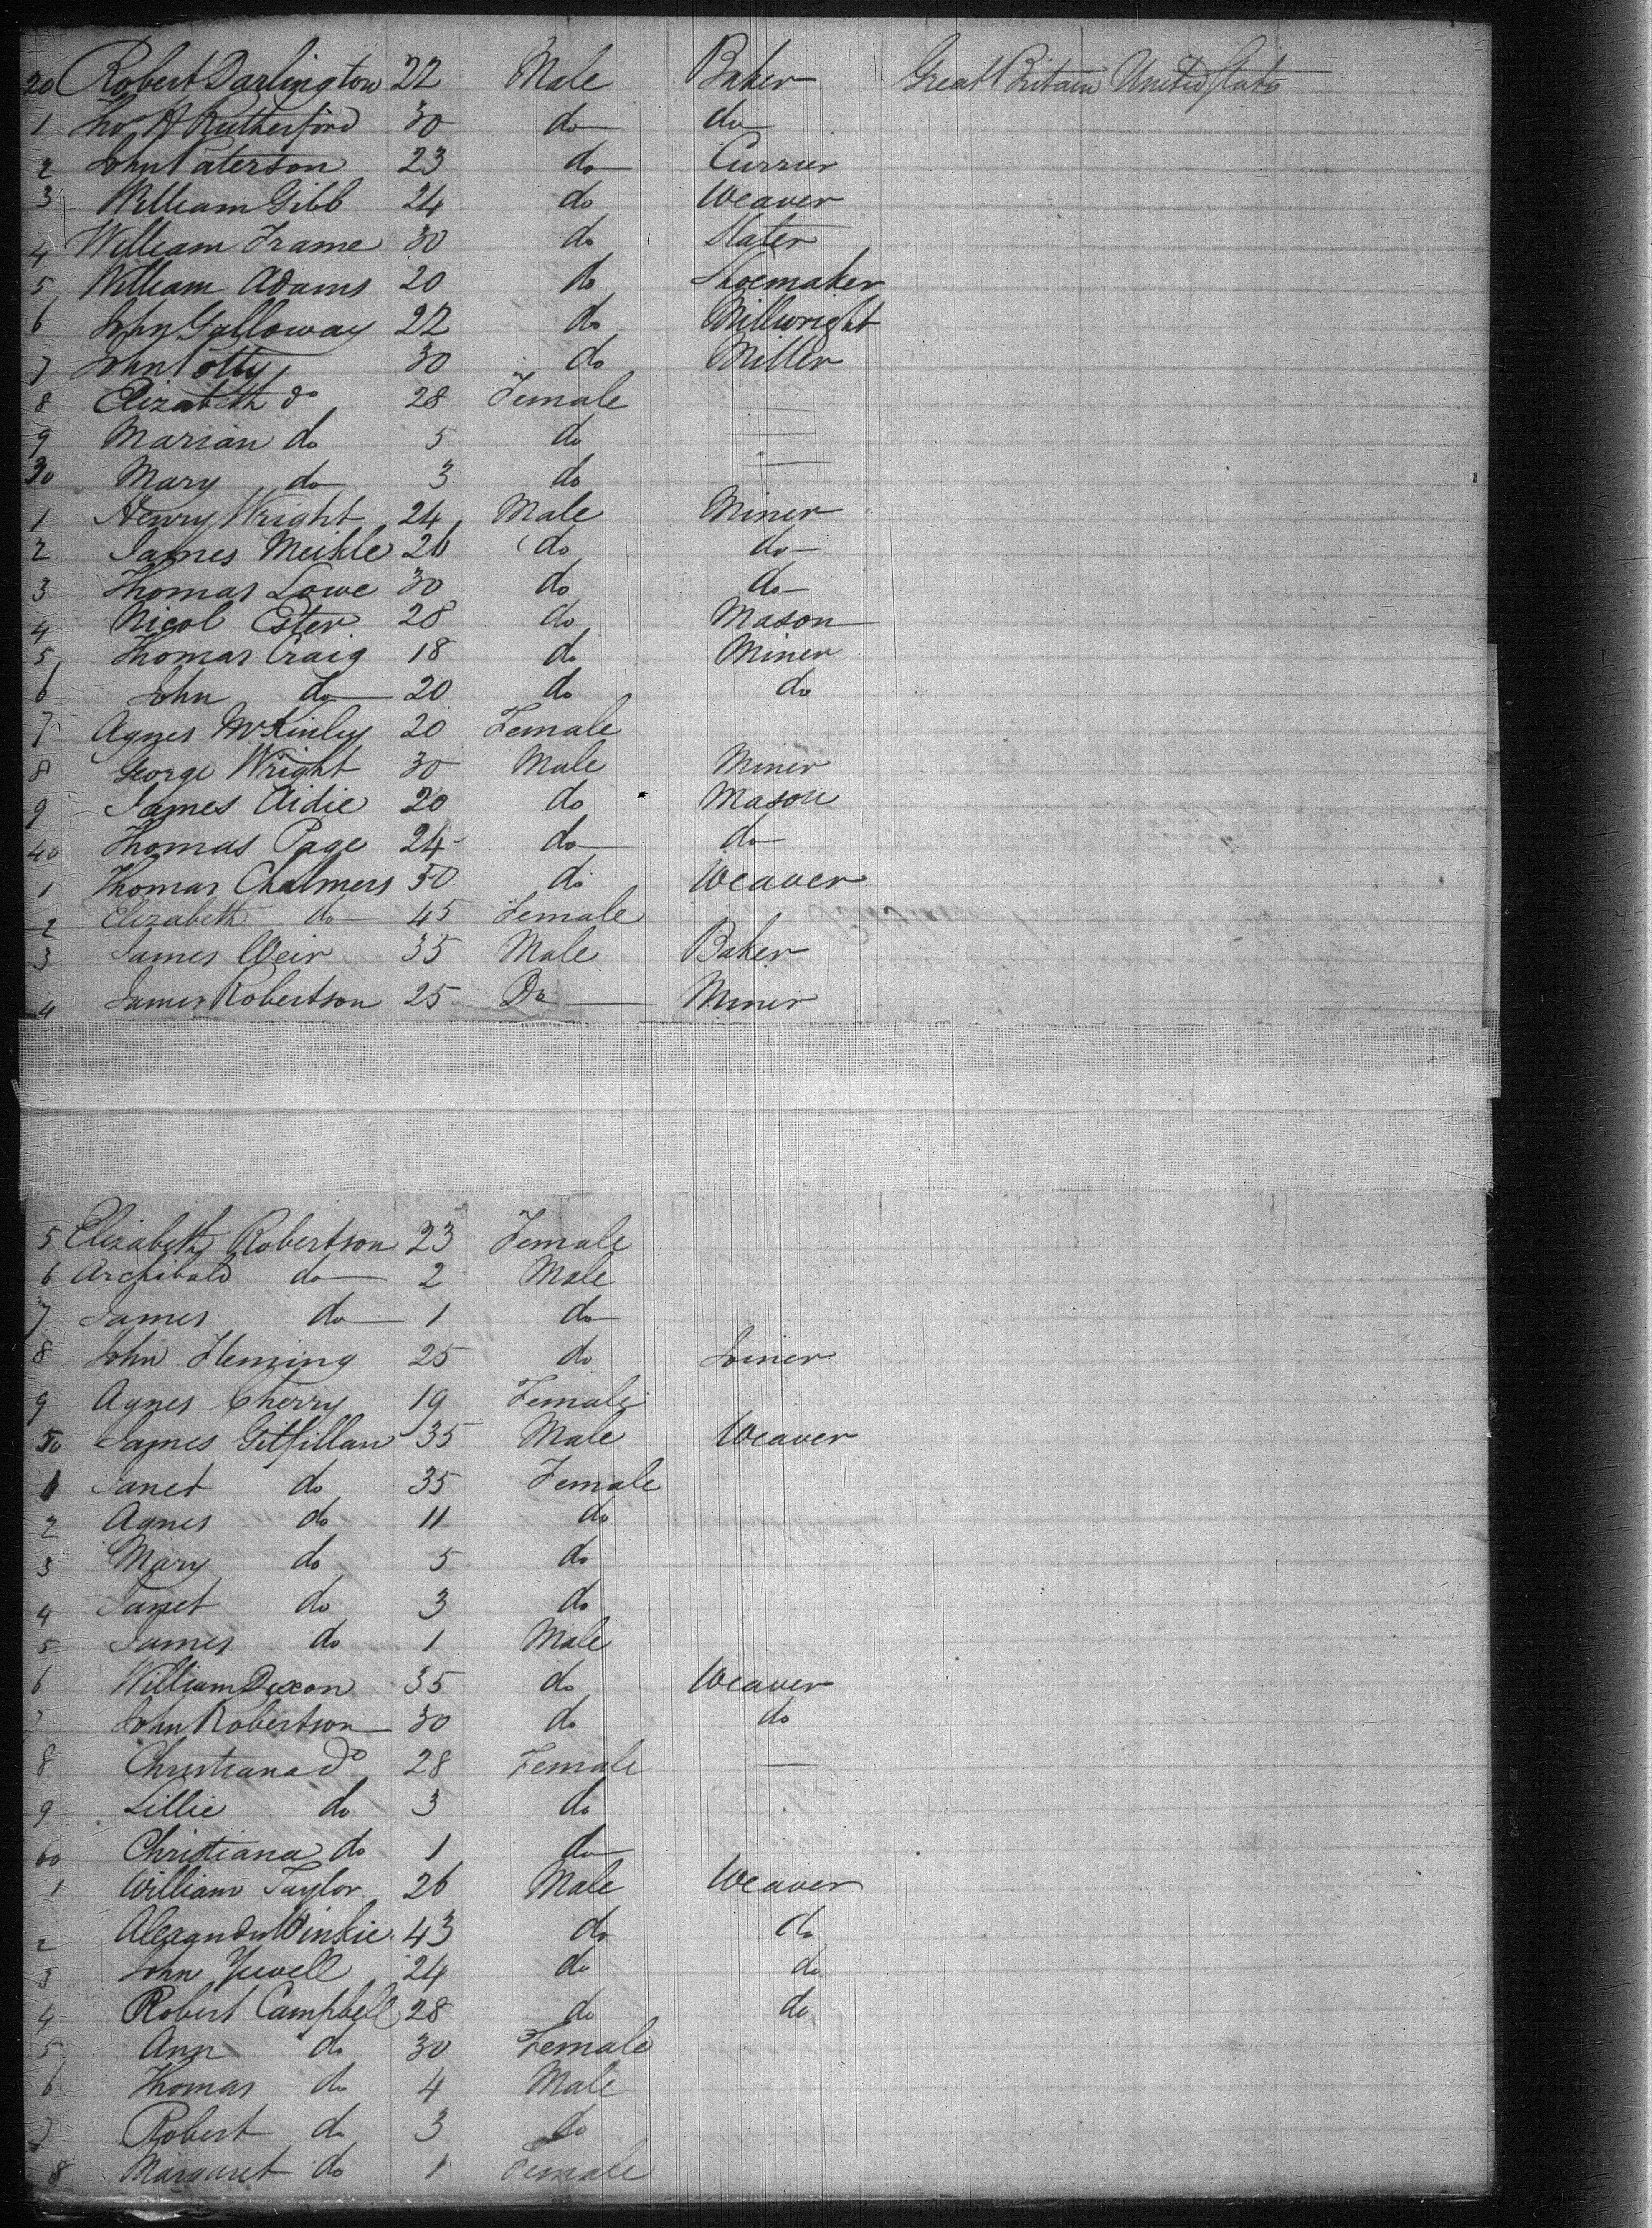 20 Robert Darlington 22 Male Baker Great Britain United States
1 Tho A Rutherford 30 do do
2 John Paterson 23 do Currier
3 William Gibb 24 do Weaver
4 William Frame 30 do Slater
5 William Adams 20 do Shoemaker
6 John Galloway 22 do Millwright
7 John Potty 30 do Miller
8 Elizabeth do 28 Female —
9 Marian do 5 do —
30 Mary do 3 do —
1 Henry Wright 24 Male Miner
2 James Meikle 26 do do
3 Thomas Lowe 30 do do
4 Nicol Ester 28 do Mason
5 Thomas Craig 18 do Miner
6 John do 20 do do
7 Agnes McKinley 20 Female
8 George Wright 30 Male Miner
9 James Aidie 20 do Mason
40 Thomas Page 24 do do
1 Thomas Chalmers 50 do Weaver
2 Elizabeth do 45 Female
3 James Weir 35 Male Baker
4 James Robertson 25 Do Miner
5 Elizabeth Robertson 23 Female
6 Archibald do 2 Male
7 James do 1 do
8 John Fleming 25 do Joiner
9 Agnes Cherry 19 Female
50 James Gilfillan 35 Male Weaver
1 Janet do 35 Female
2 Agnes do 11 do
3 Mary do 5 do
4 Janet do 3 do
5 James do 1 Male
6 William Dixon 35 do Weaver
7 John Robertson 30 do do
8 Christiana do 28 Female —
9 Lillie do 3 do
60 Christiana do 1 do
1 William Taylor 26 Male Weaver
2 Alexander 43 do do
3 John Yuvell 24 do do
4 Robert Campbell 28 do do
5 Ann do 30 Female
6 Thomas do 4 Male
7 Robert do 3 do
8 Margaret do 1 Female